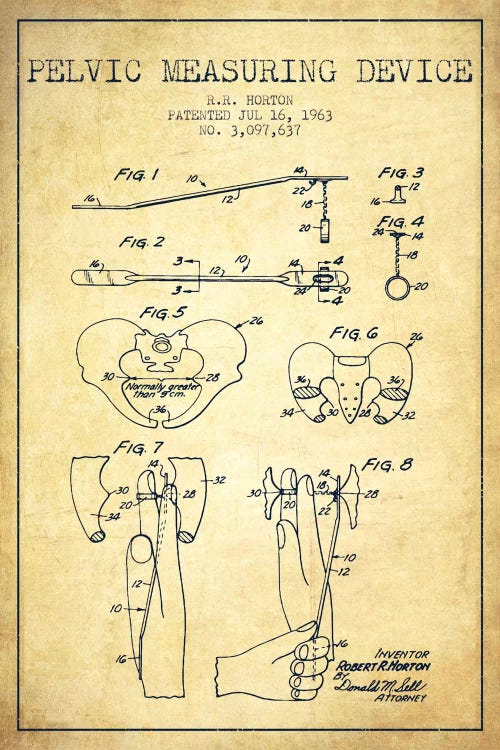 PELVIC MEASURING DEVICE
R.R. HORTON
PATENTED JUL 16, 1963
NO. 3,097,637
FIG. 1
10
14
22
16
12
18
20
FIG. 3
12
16
FIG. 4
24
14
18
20
FIG. 2
16
3
3
12
10
14
4
24
20
4
FIG. 5
26
30
28
Normally greater
than 9 cm.
36
FIG. 6
26
36
36
34
32
FIG. 7
14
30
20
28
32
34
12
10
16
FIG. 8
14
18
30
20
22
28
10
12
16
INVENTOR
ROBERT R. HORTON
BY
Donald M. Sell
ATTORNEY